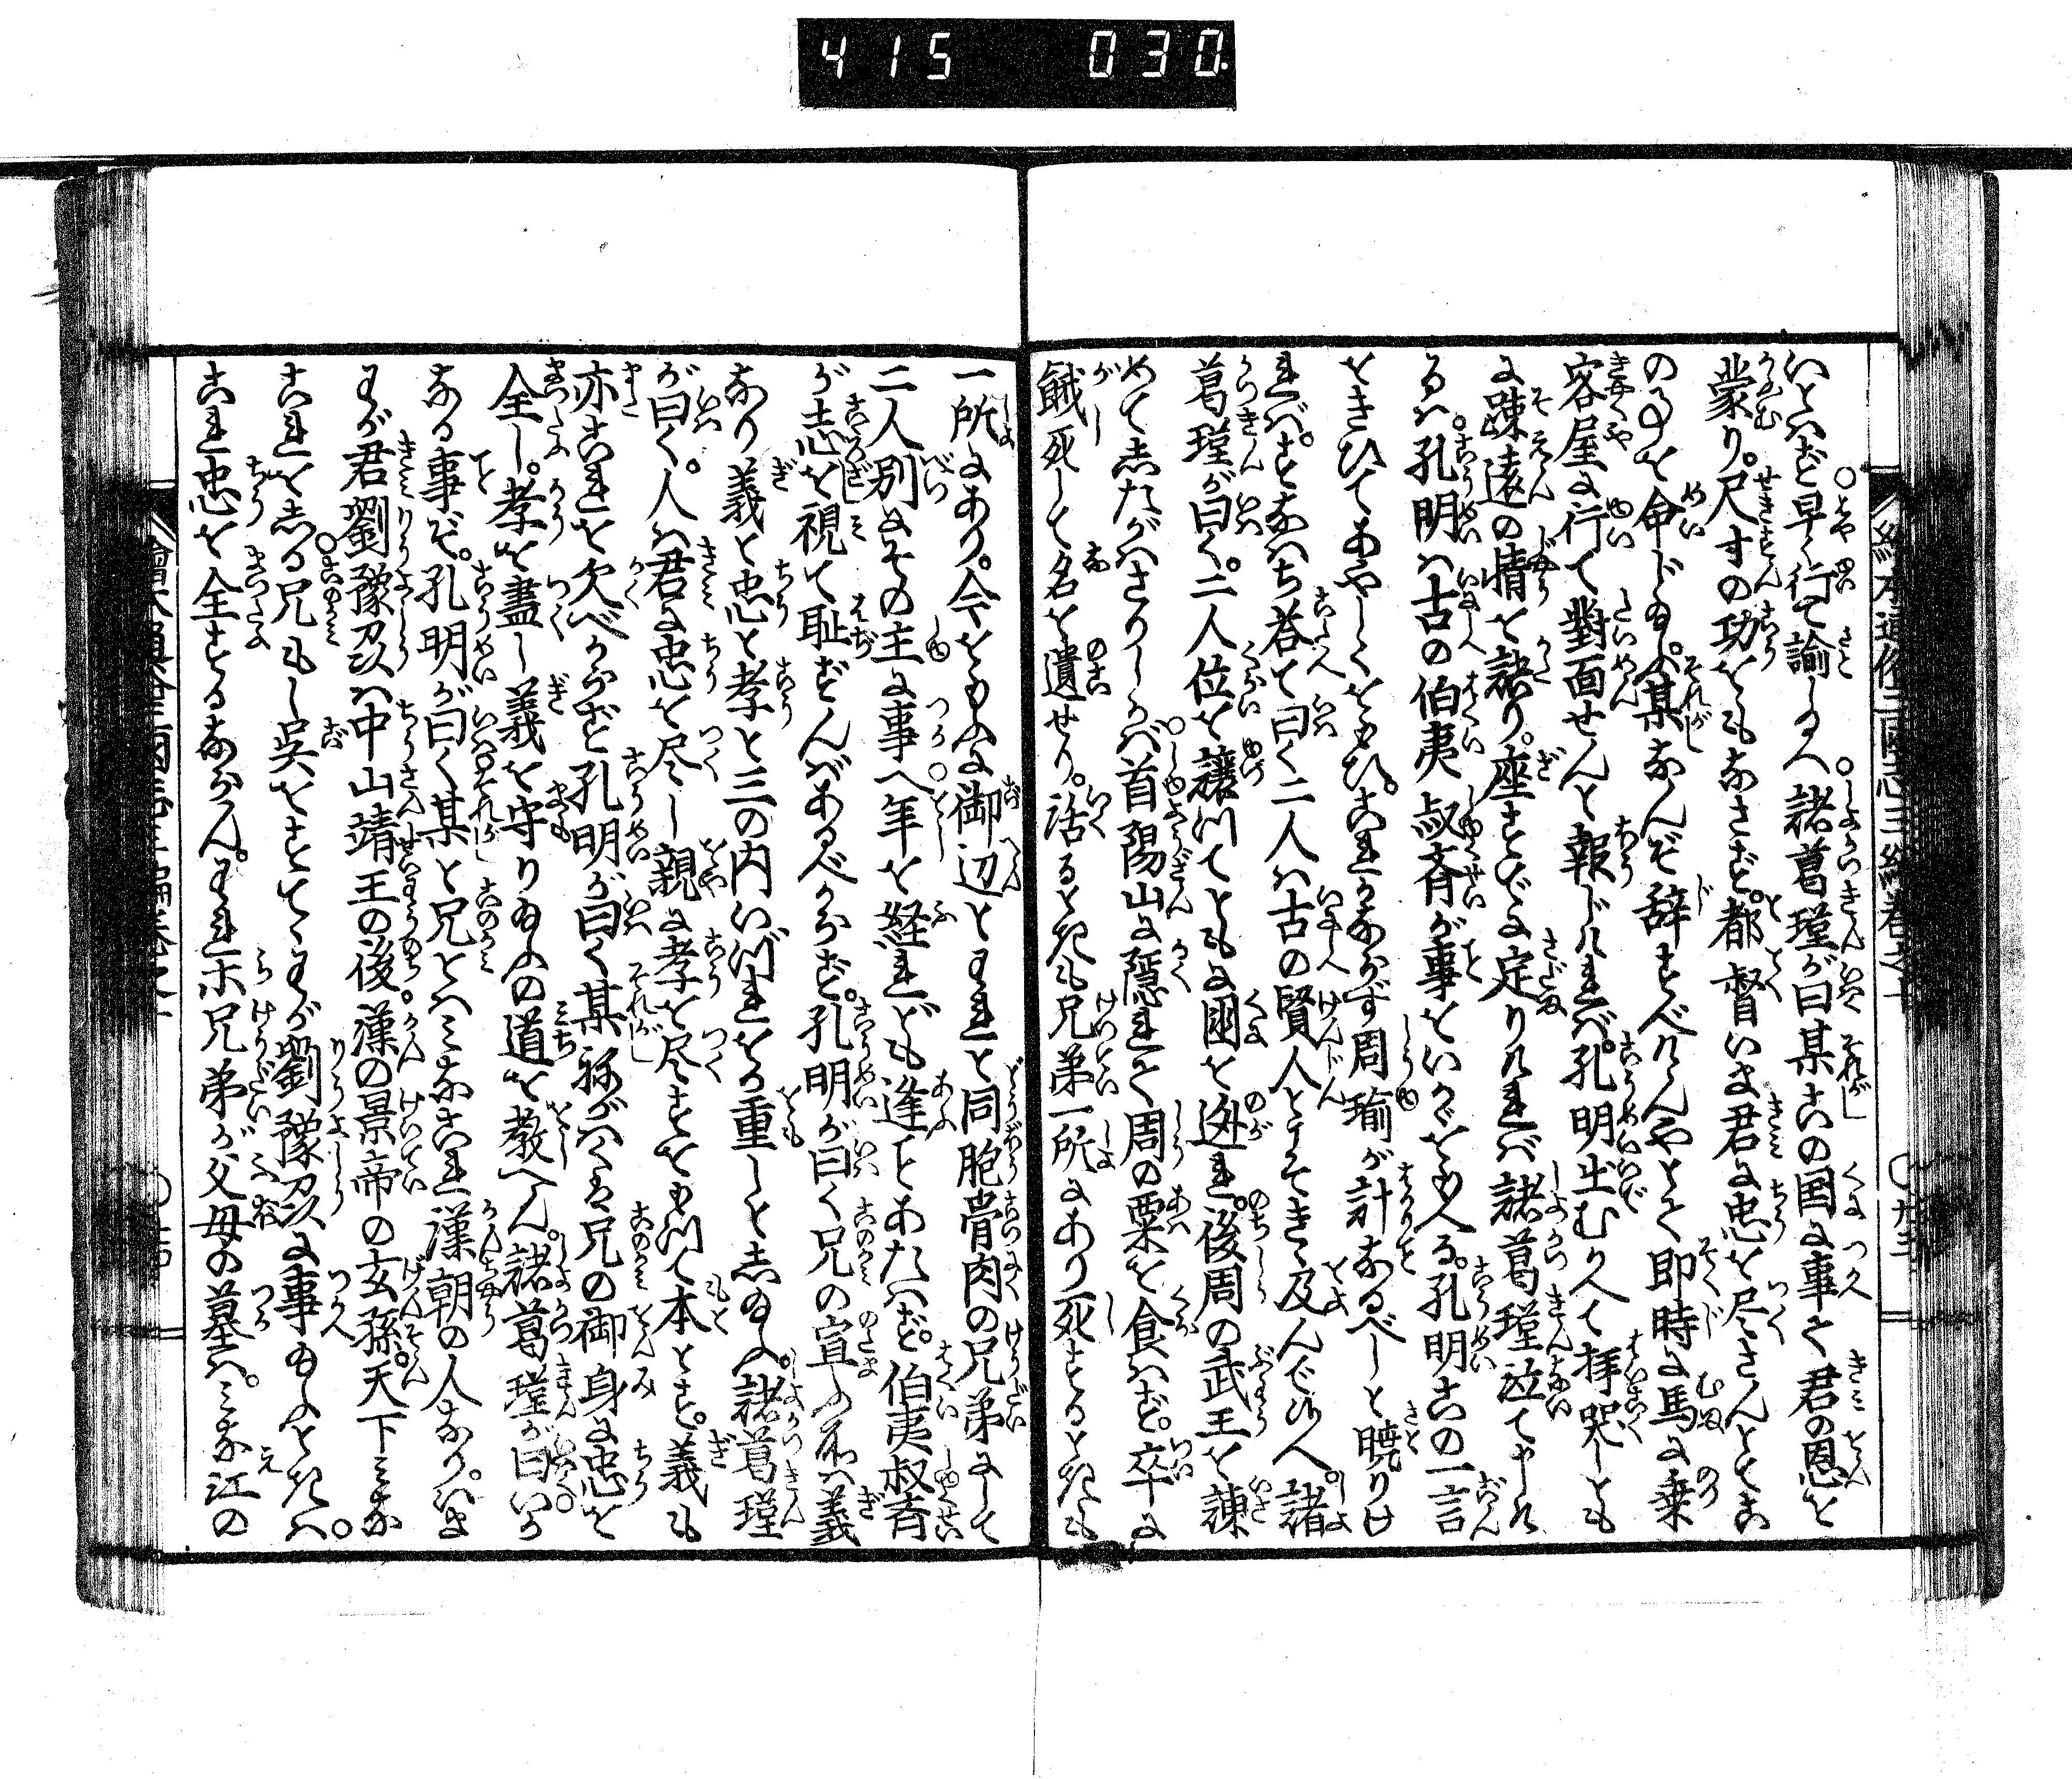 415 030
いとはず早く行て諭し玉へ諸葛瑾が曰某この国に事て君の恩を
蒙り。尺寸の功をもなさず。都督いま君に忠を尽さんとてこ
のことを命じ玉ふ某なんぞ辞すべけんやとて即時に馬に乗
客屋に行て對面せんと報じければ。孔明出むかへて拝哭しとも
に踈遠の情を諸り。座すでに定りければ諸葛瑾泣て申け
るハ。孔明ハ古の伯夷叔斉が事をいかゞをもへる。孔明この一言
をきひてあやしくをもひ。これかならず周瑜が計なるべしと暁りけ
れば。すなハち荅て曰く二人ハ古の賢人とこそきゝ及んで候へ。諸
葛瑾が曰く。二人位を譲つてともに國を迯れ。後周の武王を諫
めてしたがハざりしかバ首陽山に隠れて周の粟を食ハず。卒に
餓死して名を遺せり。活るときも兄弟一所にあり死するときも
一所にあり。今をもふに御辺とわれと同胞骨肉の兄弟にして
二人別にその主に事へ年を経れども逢ことあたハず。伯夷叔斉
が志を視て恥ずんバあるべからず。孔明が曰く兄の宣ふ所ハ義
なり義と忠と孝と三の内いづれをか重しとし玉ふ。諸葛瑾
が曰く。人ハ君に忠を尽し親に孝を尽すをもつて本とす。義も
亦これを欠べからず孔明が曰く某祢がハくハ兄の御身に忠を
全し。孝を盡し義を守り玉ふの道を教へん。諸葛瑾が曰いか
なる事ぞ。孔明が曰く某と兄とハミなこれ漢朝の人なり。いま
わが君劉豫州ハ中山靖王の後。漢の景帝の玄孫。天下ミな
これをしる兄もし呉をすてゝわが劉豫州に事玉ふときハ。
これ忠を全するならん。われ等兄弟が父母の墓ハ。ミな江の